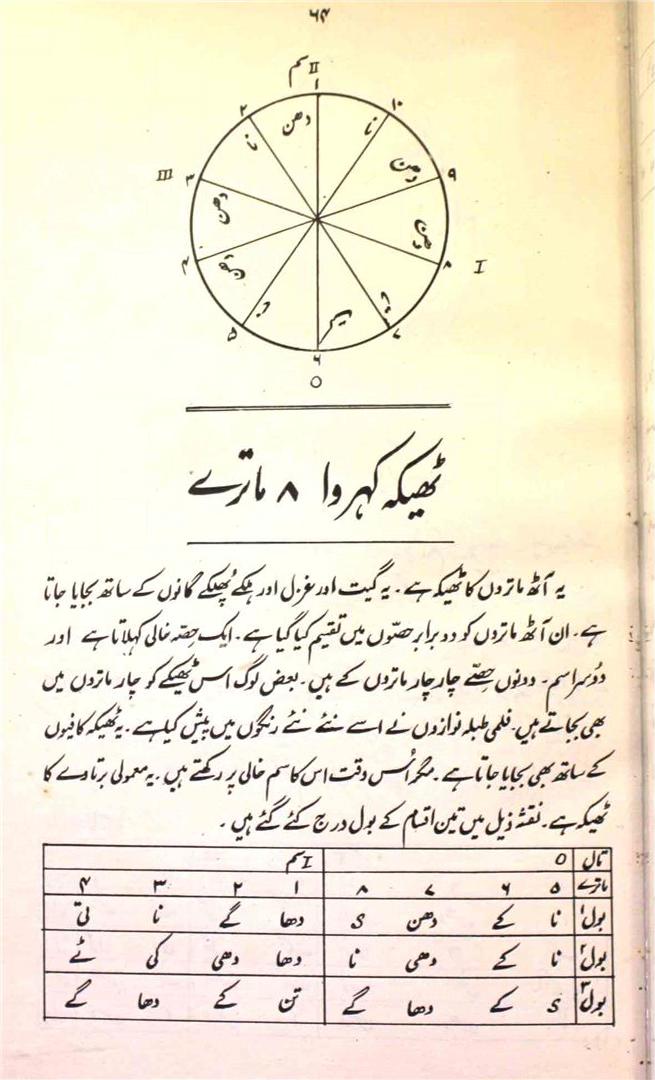 ۶۴
II سم
۱
۱۰
۹
۸
I
۷
۶
O
۵
۴
۳
III
۲
دھن
نا
دھن
دھن
نا
دھن
دھن
نا
ٹھیکہ کہروا ۸ ماترے
یہ آٹھ ماتروں کا ٹھیکہ ہے۔ یہ گیت اور غزل اور ہلکے پُھلکے گانوں کے ساتھ بجایا جاتا
ہے۔ ان آٹھ ماتروں کو دو برابر حصّوں میں تقسیم کیا گیا ہے۔ ایک حصّہ خالی کہلاتا ہے اور
دُوسرا سم۔ دونوں حصّے چار چار ماتروں کے ہیں۔ بعض لوگ اس ٹھیکے کو چار ماتروں میں
بھی بجاتے ہیں۔ فلمی طبلہ نوازوں نے اسے نئے نئے رنگوں میں پیش کیا ہے۔ یہ ٹھیکہ کافیوں
کے ساتھ بھی بجایا جاتا ہے۔ مگر اُس وقت اس کا سم خالی پر رکھتے ہیں۔ یہ معمولی برتاوے کا
ٹھیکہ ہے۔ نقشۂ ذیل میں تین اقسام کے بول درج کئے گئے ہیں۔
تال O I سم
ماترے ۵ ۶ ۷ ۸ ۱ ۲ ۳ ۴
بول۱ نا کے دھن S دھا گے نا تی
بول۲ نا کے دھی نا دھا دھی کی ٹے
بول۳ S کے دھا گے تن کے دھا گے